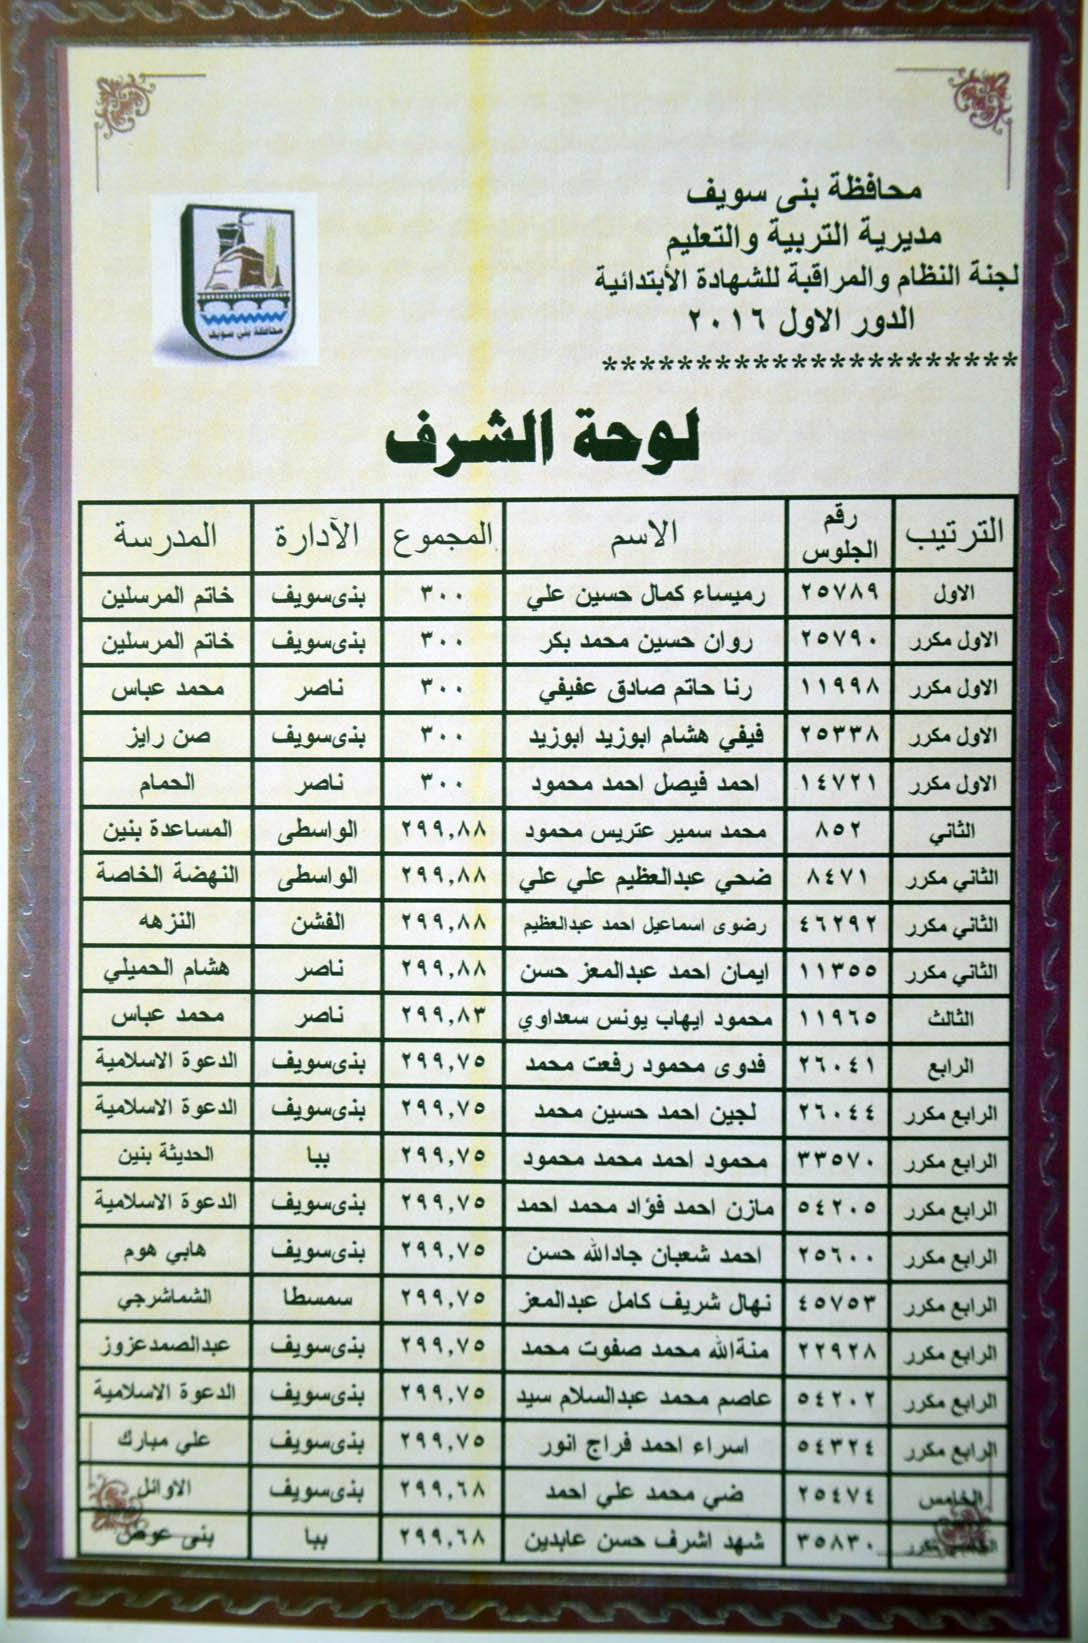 محافظة بنى سويف
مديرية التربية والتعليم
لجنة النظام والمراقبة للشهادة الأبتدائية
الدور الاول ٢٠١٦
**********************
محافظة بني سويف
لوحة الشرف
الترتيب رقم الجلوس الاسم المجموع الآدارة المدرسة
الاول ٢٥٧٨٩ رميساء كمال حسين علي ٣٠٠ بنى سويف خاتم المرسلين
الاول مكرر ٢٥٧٩٠ روان حسين محمد بكر ٣٠٠ بنى سويف خاتم المرسلين
الاول مكرر ١١٩٩٨ رنا حاتم صادق عفيفي ٣٠٠ ناصر محمد عباس
الاول مكرر ٢٥٣٣٨ فيفي هشام ابوزيد ابوزيد ٣٠٠ بنى سويف صن رايز
الاول مكرر ١٤٧٢١ احمد فيصل احمد محمود ٣٠٠ ناصر الحمام
الثاني ٨٥٢ محمد سمير عتريس محمود ٢٩٩,٨٨ الواسطى المساعدة بنين
الثاني مكرر ٨٤٧١ ضحي عبدالعظيم علي علي ٢٩٩,٨٨ الواسطى النهضة الخاصة
الثاني مكرر ٤٦٢٩٢ رضوى اسماعيل احمد عبدالعظيم ٢٩٩,٨٨ الفشن النزهه
الثاني مكرر ١١٣٥٥ ايمان احمد عبدالمعز حسن ٢٩٩,٨٨ ناصر هشام الحميلي
الثالث ١١٩٦٥ محمود ايهاب يونس سعداوي ٢٩٩,٨٣ ناصر محمد عباس
الرابع ٢٦٠٤١ فدوى محمود رفعت محمد ٢٩٩,٧٥ بنى سويف الدعوة الاسلامية
الرابع مكرر ٢٦٠٤٤ لجين احمد حسين محمد ٢٩٩,٧٥ بنى سويف الدعوة الاسلامية
الرابع مكرر ٣٣٥٧٠ محمود احمد محمد محمود ٢٩٩,٧٥ ببا الحديثة بنين
الرابع مكرر ٥٤٢٠٥ مازن احمد فؤاد محمد احمد ٢٩٩,٧٥ بنى سويف الدعوة الاسلامية
الرابع مكرر ٢٥٦٠٠ احمد شعبان جادالله حسن ٢٩٩,٧٥ بنى سويف هابي هوم
الرابع مكرر ٤٥٧٥٣ نهال شريف كامل عبدالمعز ٢٩٩,٧٥ سمسطا الشماشرجي
الرابع مكرر ٢٢٩٢٨ منةالله محمد صفوت محمد ٢٩٩,٧٥ بنى سويف عبدالصمدعزوز
الرابع مكرر ٥٤٢٠٢ عاصم محمد عبدالسلام سيد ٢٩٩,٧٥ بنى سويف الدعوة الاسلامية
الرابع مكرر ٥٤٣٢٤ اسراء احمد فراج انور ٢٩٩,٧٥ بنى سويف علي مبارك
الخامس ٢٥٤٧٤ ضي محمد علي احمد ٢٩٩,٦٨ بنى سويف الاوائل
الخامس مكرر ٣٥٨٣٠ شهد اشرف حسن عابدين ٢٩٩,٦٨ ببا بنى عوض